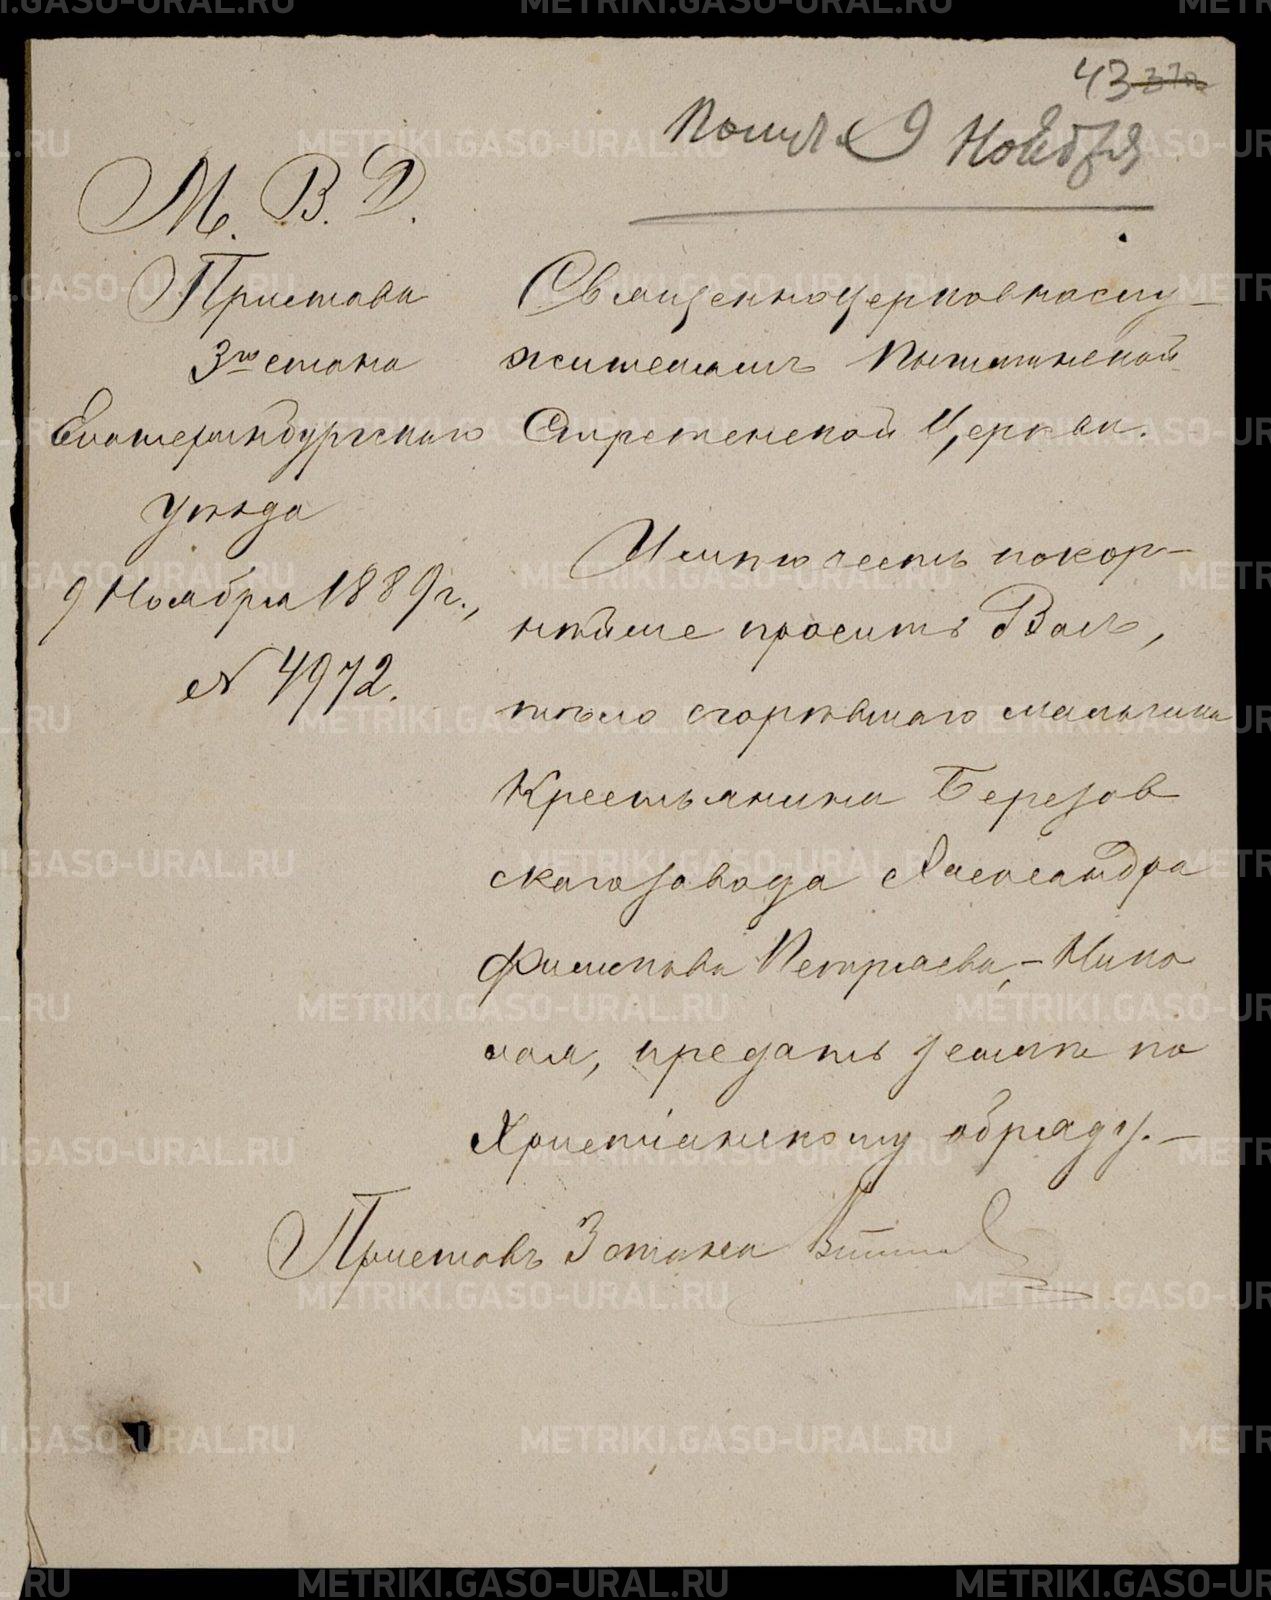 43 37а
Получ. 9 Ноября
М. В. Д.
Пристава
3го стана
Екатеринбургскаго
уѣзда
9 Ноября 1889 г.,
№ 4972.
Священноцерковнослу-
жителямъ Пышминской
Стретенской Церкви.
Имѣю честь покор-
нѣйше просить Васъ,
тѣло сгорѣвшаго мальчика
Крестьянина Березов
скаго завода Александра
Филипова Петряева, - Нико
лая, предать землѣ по
Христіанскому обряду. -
Приставъ 3 стана
METRIKI.GASO-URAL.RU